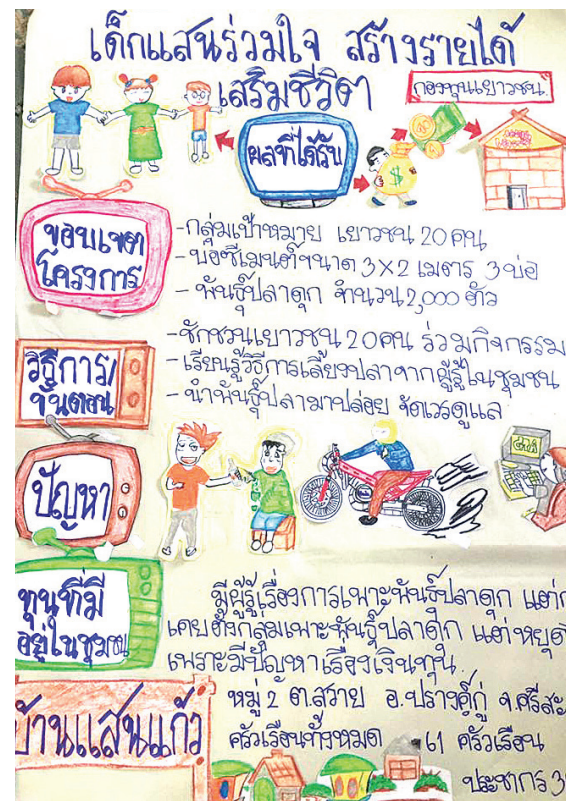 เด็กแสนร่วมใจ สร้างรายได้
เสริมชีวิต
กองทุนเยาวชน
ผลที่ได้รับ
ขอบเขต
โครงการ
-กลุ่มเป้าหมาย เยาวชน 20 คน
-บ่อซีเมนต์ขนาด 3x2 เมตร 3 บ่อ
- พันธุ์ปลาดุก จำนวน 2,000 ตัว
วิธีการ/
ขั้นตอน
-ชักชวนเยาวชน 20 คน ร่วมกิจกรรม
-เรียนรู้วิธีการเลี้ยงปลาจากผู้รู้ในชุมชน
-นำพันธุ์ปลามาปล่อย จัดเวรดูแล
ปัญหา
ทุนที่มี
อยู่ในชุมชน
มีผู้รู้เรื่องการเพาะพันธุ์ปลาดุก แต่ก
เคยตั้งกลุ่มเพาะพันธุ์ปลาดุก แต่หยุด
เพราะมีปัญหาเรื่องเงินทุน
บ้านแสนแก้ว
หมู่ 2 ต.สวาย อ.ปรางค์กู่ จ.ศรีสะ
ครัวเรือนทั้งหมด 61 ครัวเรือน
ประชากร 3